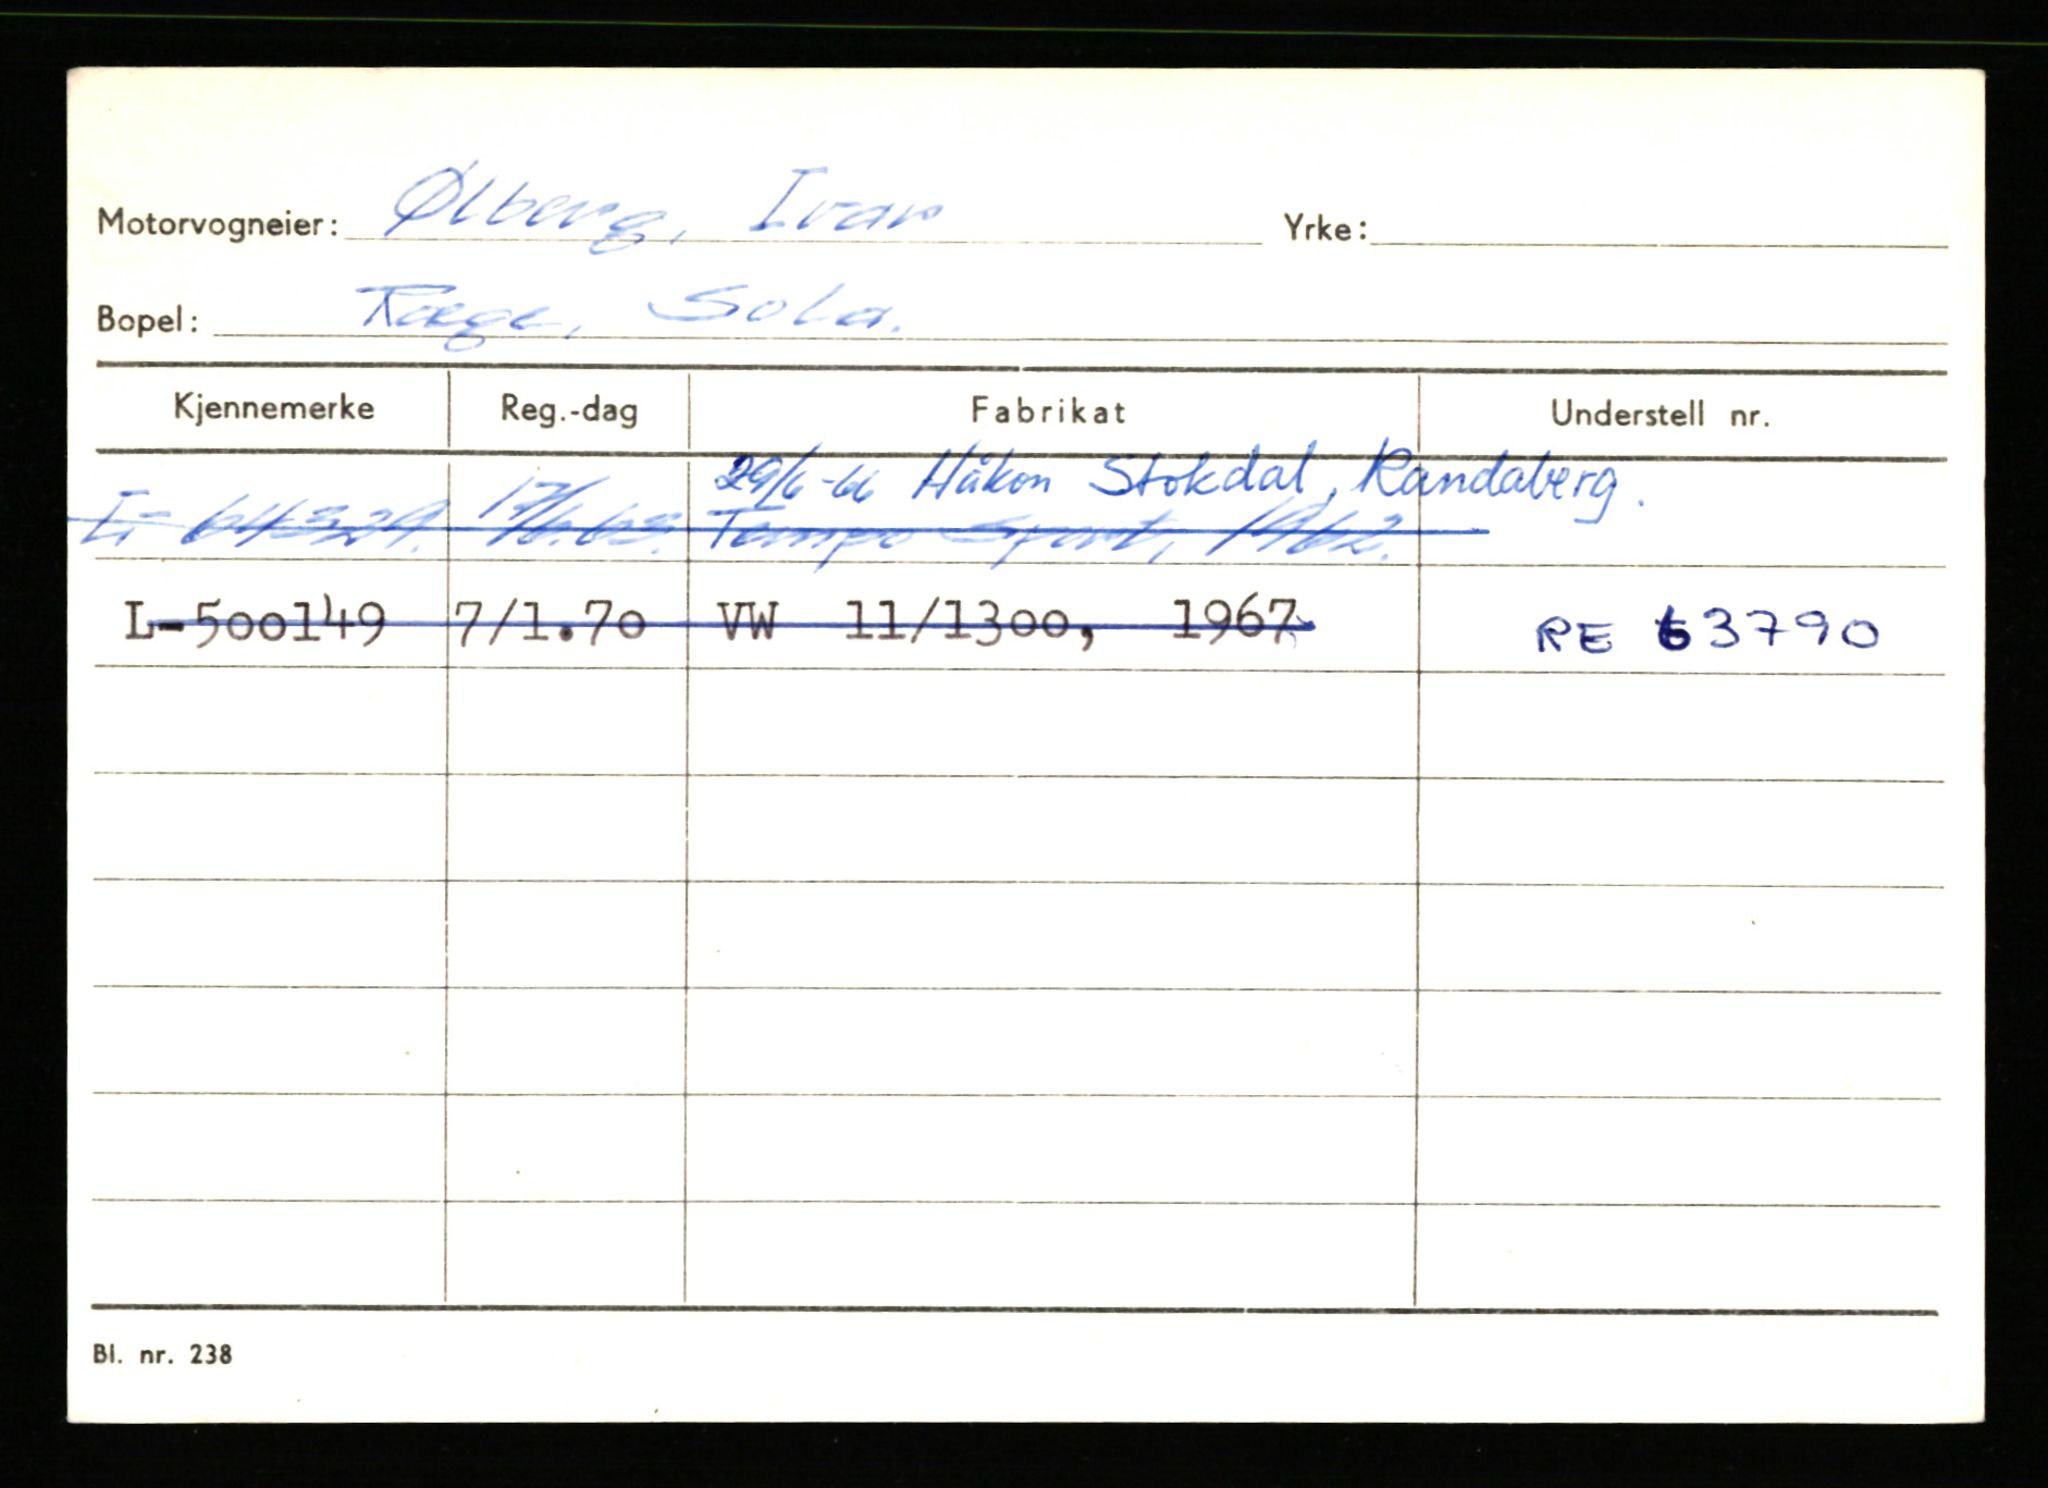 Motorvogneier: Ølberg, Ivar Yrke:
Bopel: Ræge, Sola.
Kjennemerke Reg.-dag Fabrikat Understell nr.
29/6-66 Håkon Stokdal, Randaberg.
L-64329. 17/6.63. Tempo Sport, 1962.
L-500149 7/1.70 VW 11/1300, 1967 RE 63790
Bl. nr. 238